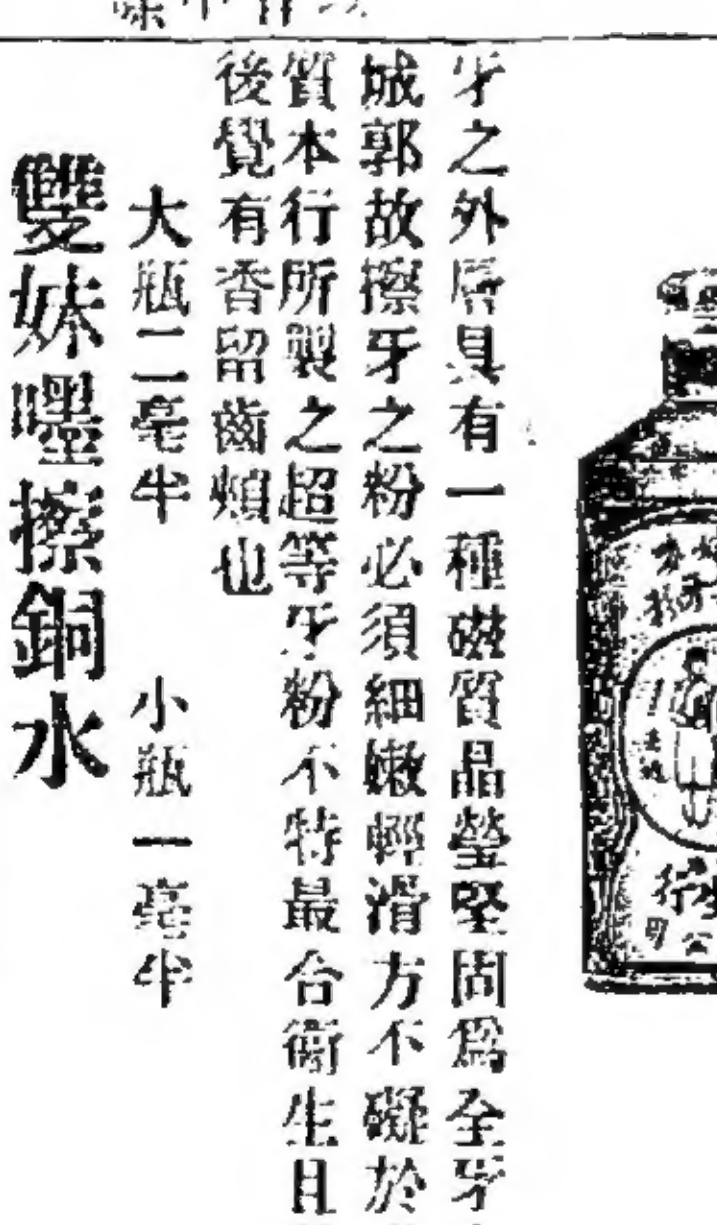 牙之外層具有一種磁質晶瑩堅固爲全牙
城郭故擦牙之粉必須細嫩輕滑方不礙於
質本行所製之超等牙粉不特最合衛生且
後覺有香留齒頰也
大瓶二毫半 小瓶一毫半
雙妹嚜擦銅水